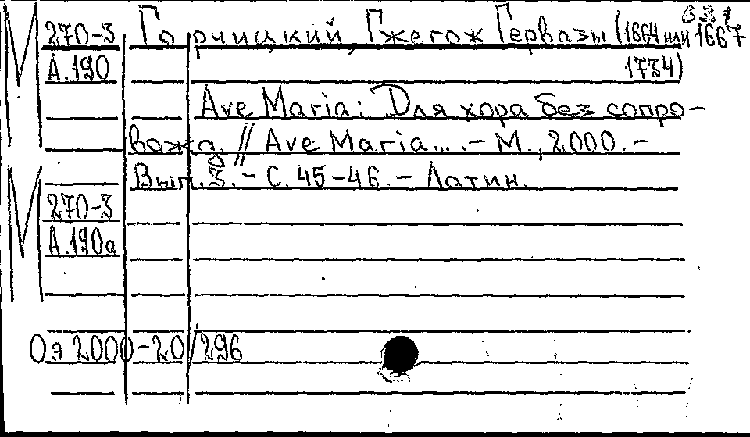 М 270-3 Горчицкий, Гжегож Гервазы (1664 или 1667
А.190 1734)
Ave Maria: Для хора без сопро-
вожд. // Ave Maria... .- М., 2000.-
Вып. 3.- С. 45-46.- Латин.
М 270-3
А.190а
Оя 2000-20/296